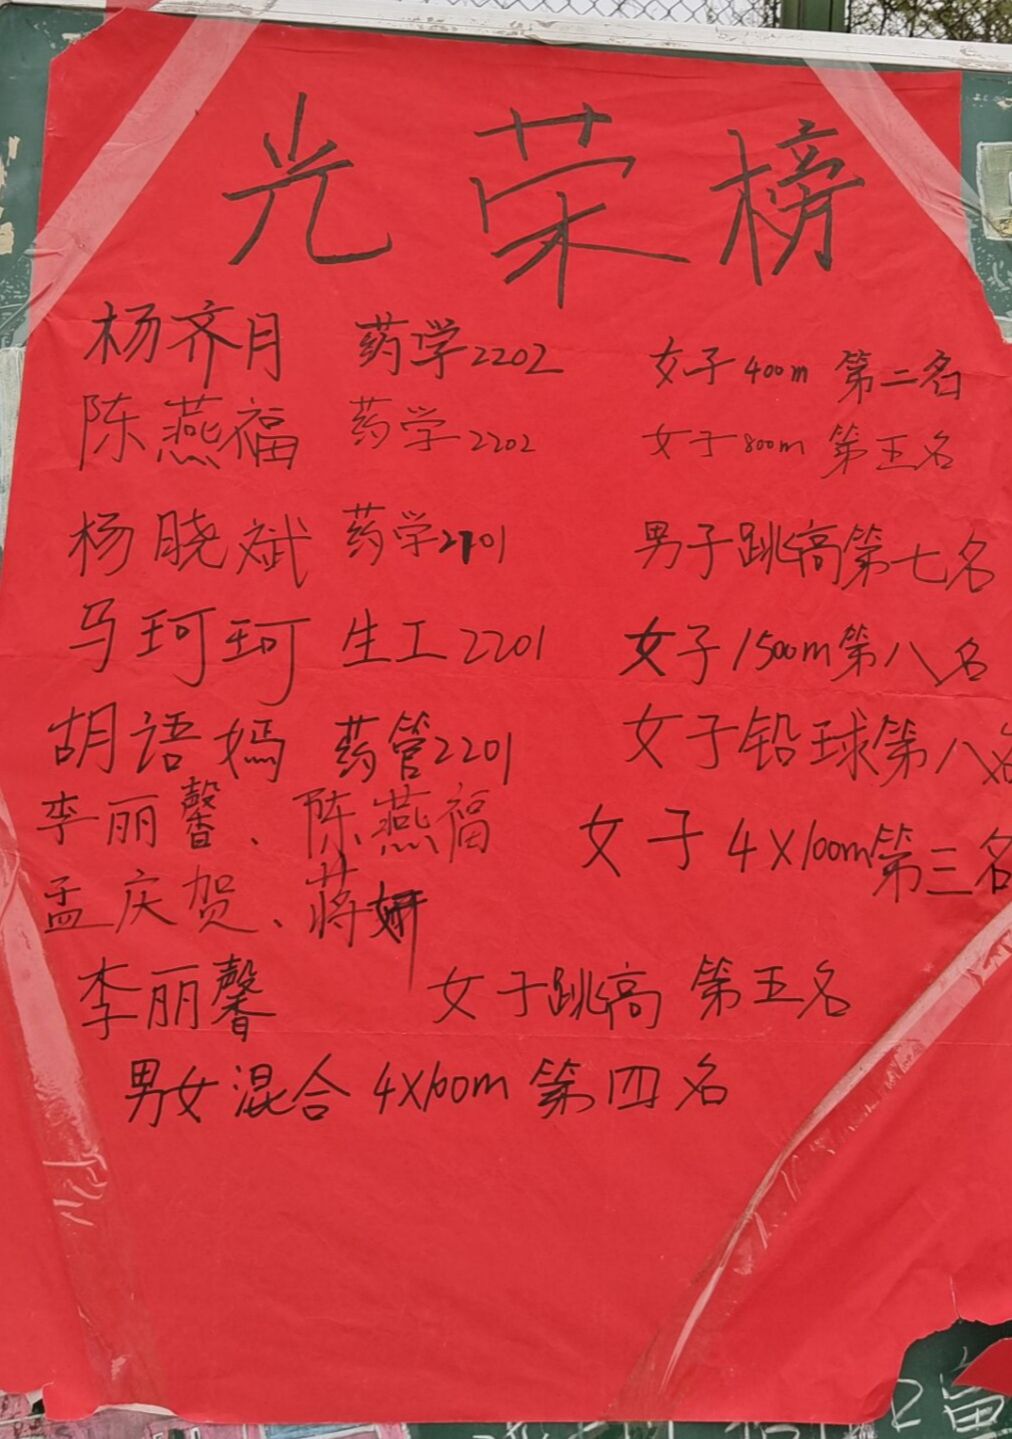 光荣榜
杨齐月 药学2202 女子400m 第二名
陈燕福 药学2202 女子800m 第五名
杨晓斌 药学2201 男子跳高第七名
马珂珂 生工2201 女子1500m第八名
胡语嫣 药管2201 女子铅球第八名
李丽馨、陈燕福 女子4X100m第三名
孟庆贺、蒋妍
李丽馨 女子跳高 第五名
男女混合 4X100m 第四名